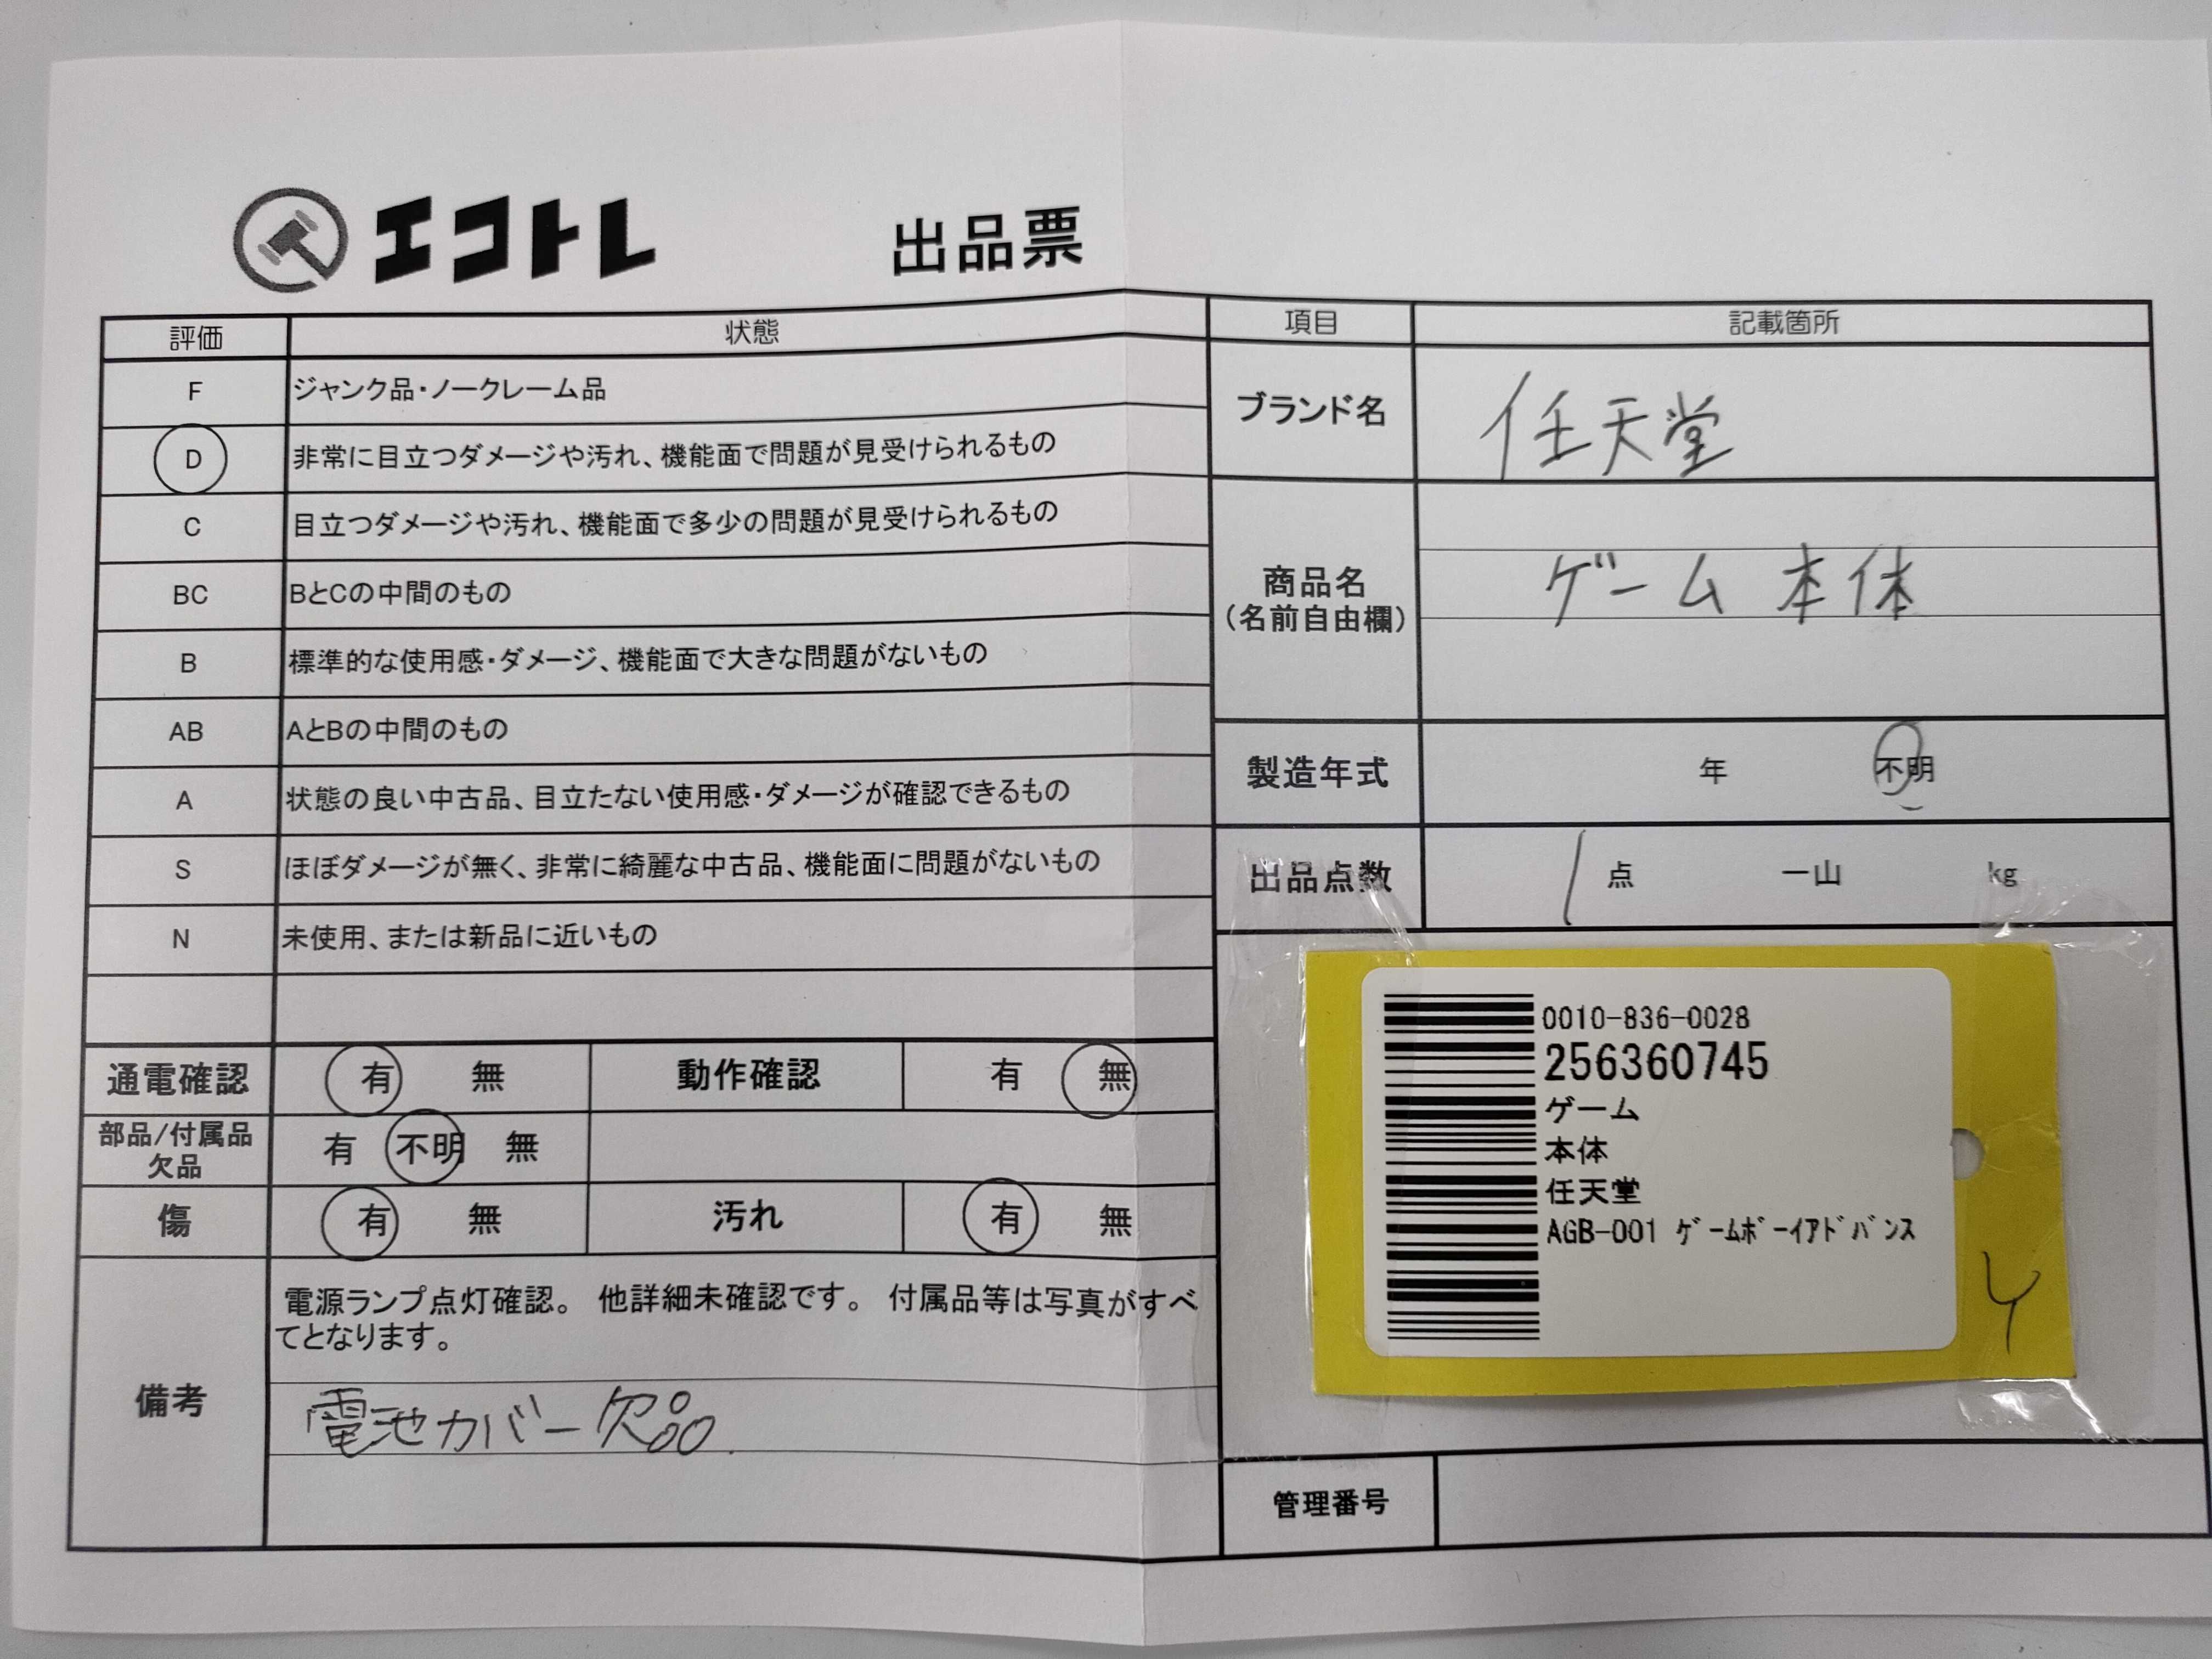 エコトレ
出品票
評価 状態
F ジャンク品・ノークレーム品
D 非常に目立つダメージや汚れ、機能面で問題が見受けられるもの
C 目立つダメージや汚れ、機能面で多少の問題が見受けられるもの
BC BとCの中間のもの
B 標準的な使用感・ダメージ、機能面で大きな問題がないもの
AB AとBの中間のもの
A 状態の良い中古品、目立たない使用感・ダメージが確認できるもの
S ほぼダメージが無く、非常に綺麗な中古品、機能面に問題がないもの
N 未使用、または新品に近いもの
通電確認 有 無 動作確認 有 無
部品/付属品
欠品
有 不明 無
傷 有 無 汚れ 有 無
備考
電源ランプ点灯確認。 他詳細未確認です。 付属品等は写真がすべ
てとなります。
電池カバー欠品
項目 記載箇所
ブランド名 任天堂
商品名
(名前自由欄)
ゲーム 本体
製造年式 年 不明
出品点数 1 点 一山 kg
0010-836-0028
256360745
ゲーム
本体
任天堂
AGB-001 ｹﾞｰﾑﾎﾞｰｲｱﾄﾞﾊﾞﾝｽ
管理番号